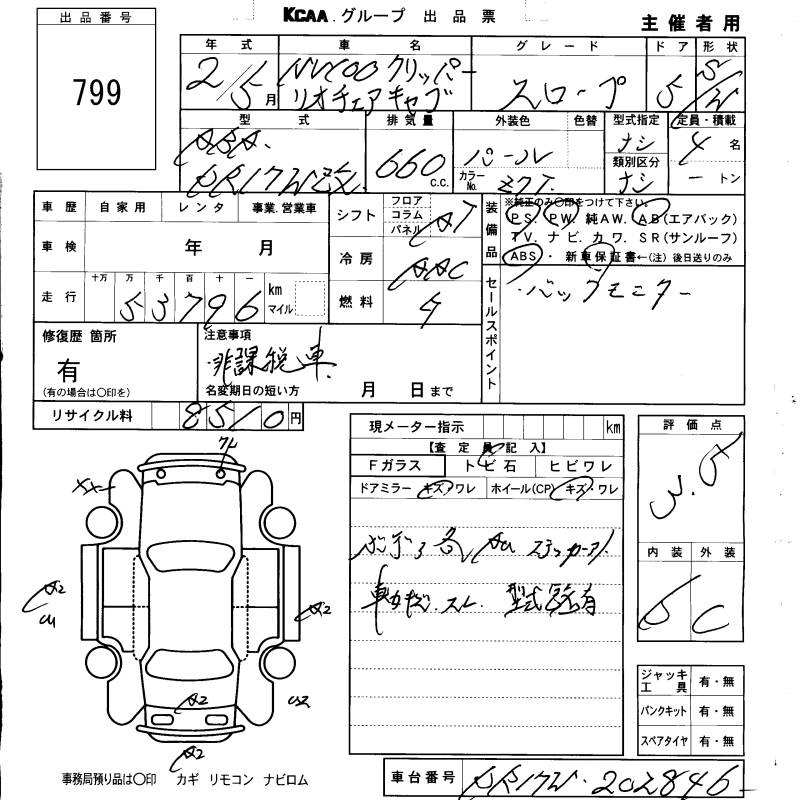 出品番号
799
KCAA.グループ 出品票
主催者用
年式 車名 グレード ドア 形状
2/5月 NV100クリッパー リオチェアキャブ スロープ 5 S/W
型式 排気量 外装色 色替 型式指定 定員・積載
ABA- DR17W改 660 C.C. パール カラーNo. Z7T ナシ 4名
類別区分 ナシ 一トン
車歴 自家用 レンタ 事業.営業車
シフト フロア コラム パネル AT
装備品 ※純正のみ○印をつけて下さい。
PS PW 純AW. AB(エアバック)
TV. ナビ. カワ. SR(サンルーフ)
ABS・ 新車保証書←(注) 後日送りのみ
車検 年 月
冷房 AAC
走行 十万 万 千 百 十 一 km マイル
53796
燃料 ガ
セールスポイント
・バックモニター
修復歴 箇所
有
(有の場合は○印を)
注意事項
非課税車.
名変期日の短い方 月 日まで
リサイクル料 8510円
現メーター指示 km
【査定員記入】
Fガラス トビ石 ヒビワレ
ドアミラー キズ・ワレ ホイール(CP) キズ・ワレ
ボディ各 AU
型式
有
評価点
3.5
内装 外装
5 C
A2
A2
A2
A2
ジャッキ 工具 有・無
パンクキット 有・無
スペアタイヤ 有・無
事務局預り品は○印 カギ リモコン ナビロム
車台番号 DR17W-202846